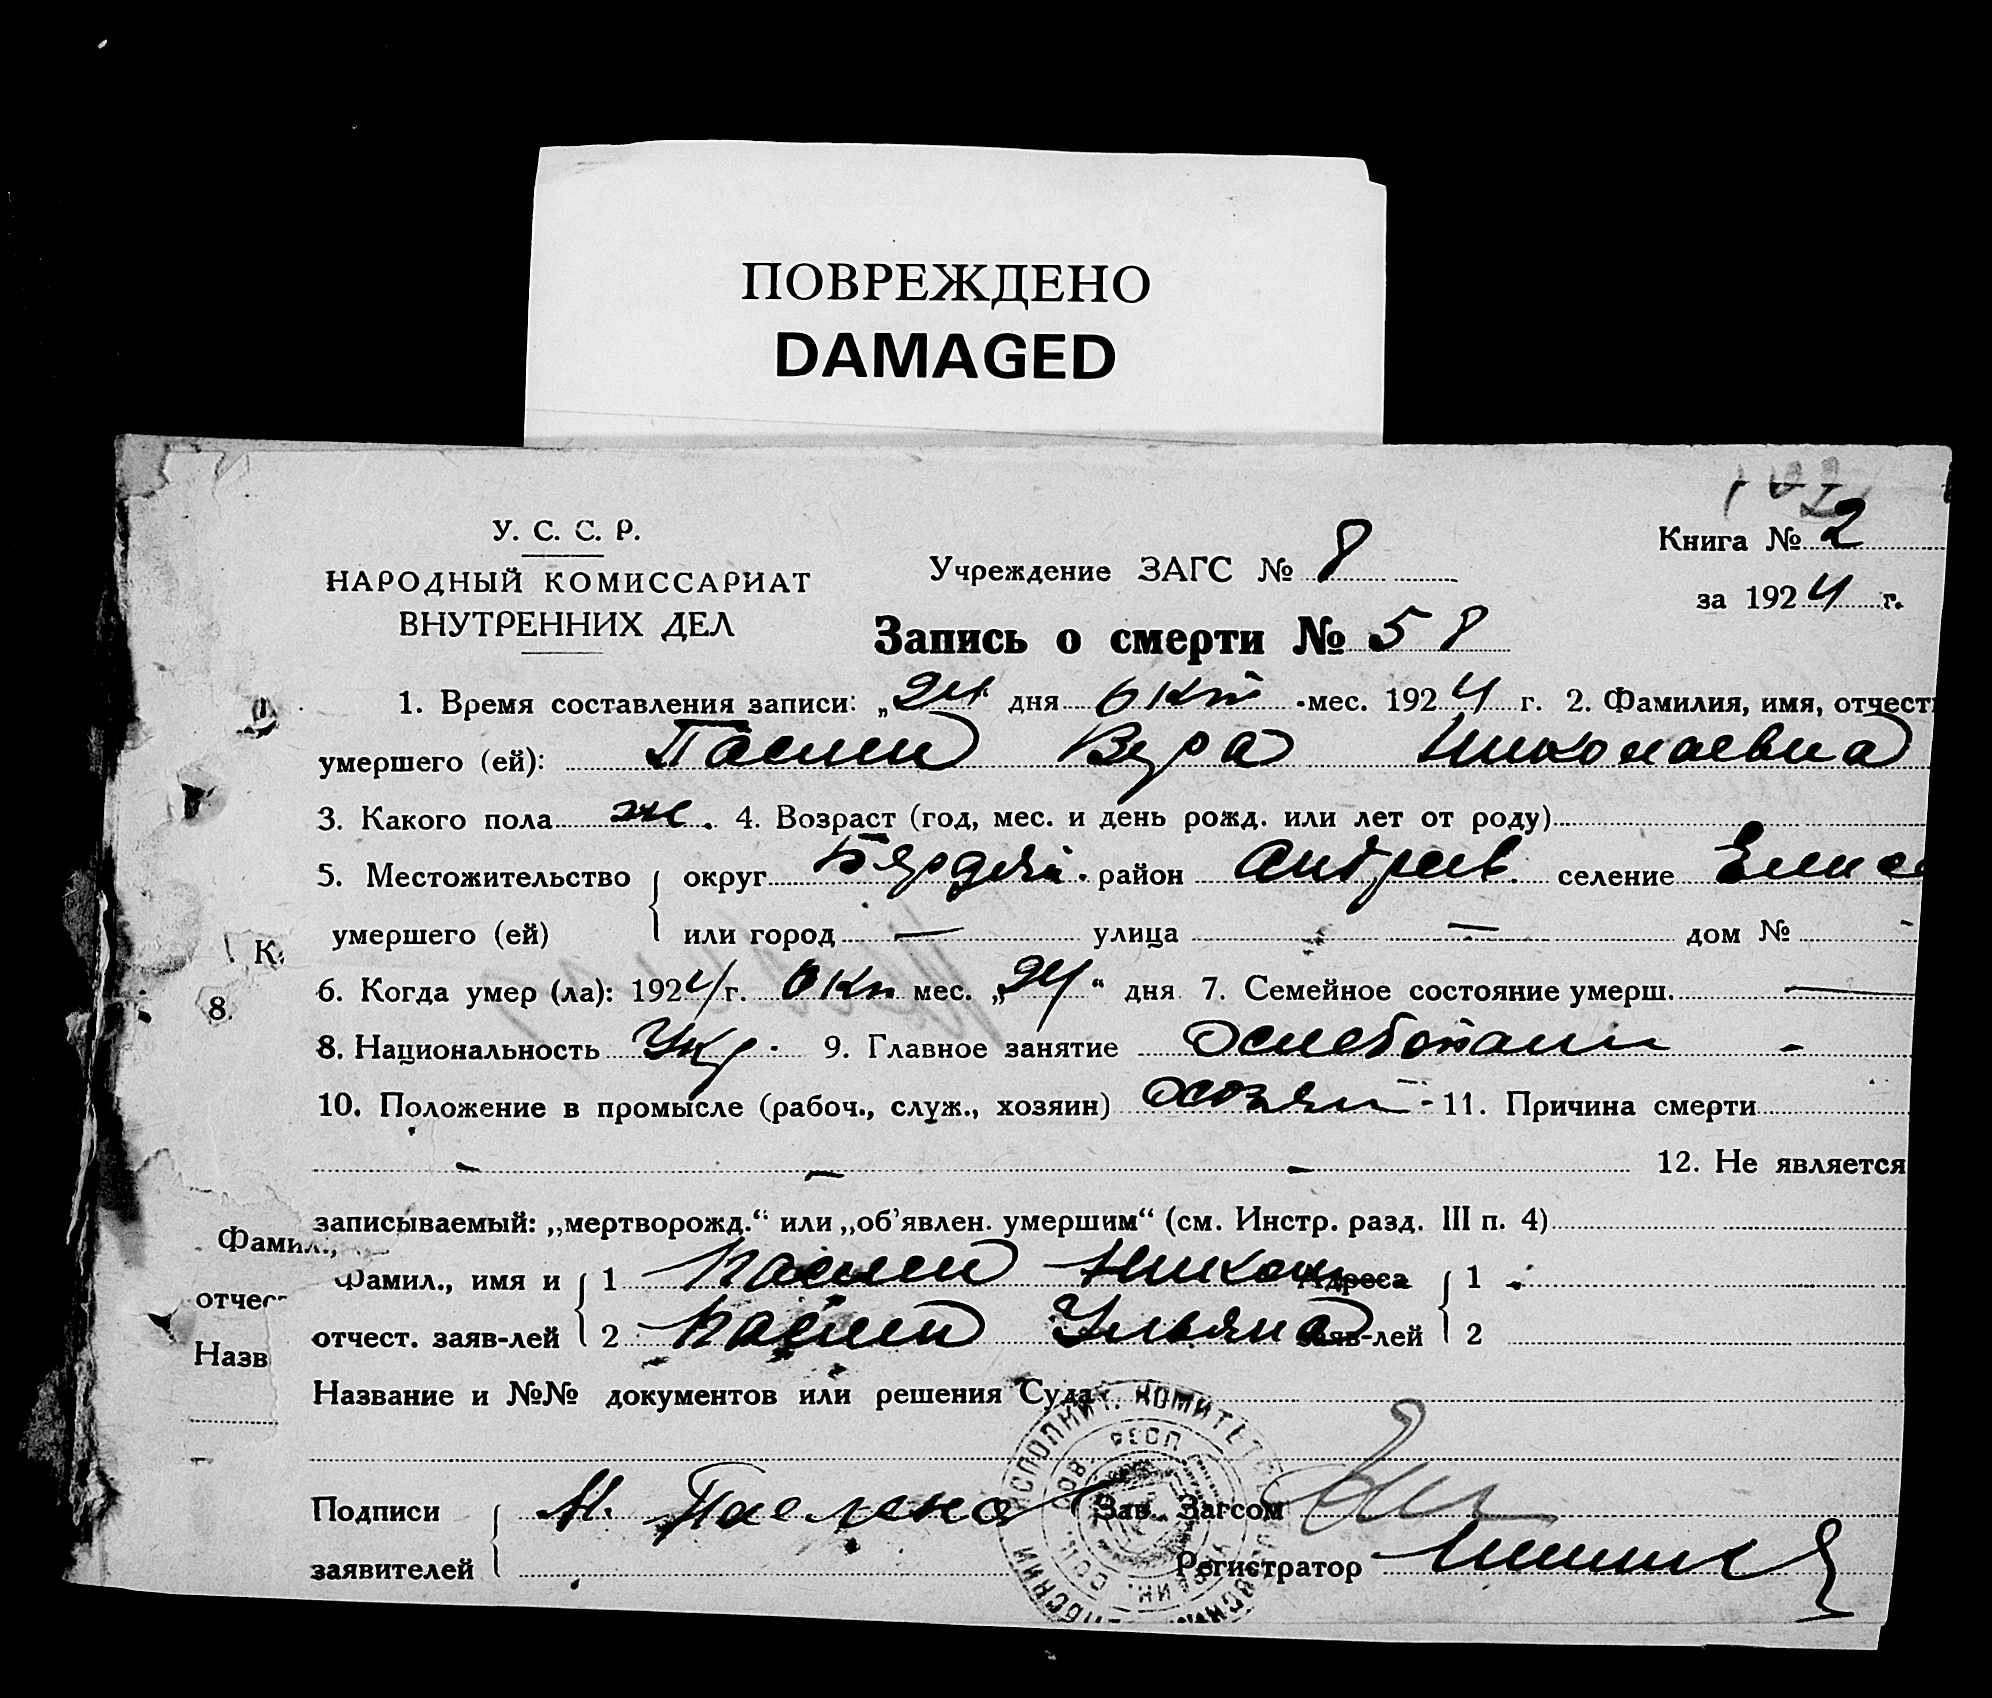 ПОВРЕЖДЕНО
DAMAGED
У. С. С. Р.
НАРОДНЫЙ КОМИССАРИАТ
ВНУТРЕННИХ ДЕЛ
Учреждение ЗАГС № 8
Книга № 2
за 1924 г.
Запись о смерти № 58
1. Время составления записи: „24“ дня Окт -мес. 1924 г. 2. Фамилия, имя, отчест
умершего (ей): Вера Николаевна
3. Какого пола ж. 4. Возраст (год, мес. и день рожд. или лет от роду)
5. Местожительство округ Бердян. район Андреев. селение Елисе
умершего (ей) или город — улица — дом № -
6. Когда умер (ла): 1924 г. Окт мес. „24“ дня 7. Семейное состояние умерш. —
8. Национальность Укр. 9. Главное занятие хлебопаш -
10. Положение в промысле (рабоч., служ., хозяин) хозяин - 11. Причина смерти
- - - 12. Не является
записываемый: „мертворожд.“ или „об'явлен. умершим“ (см. Инстр. разд. III п. 4)
К
8.
Фамил.,
отчес
Назв
Фамил., имя и 1 Адреса 1
отчест. заяв-лей 2 Ульяна заяв-лей 2
Название и №№ документов или решения Суда
Подписи Н. Зав. Загсом
заявителей Регистратор
ИСПОЛНИТ. КОМИТЕТ